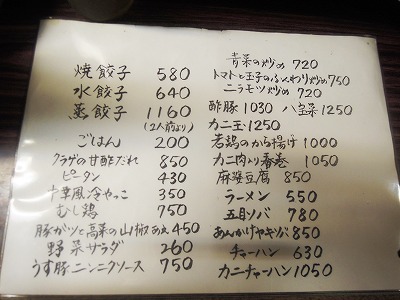 焼餃子 580
水餃子 640
蒸餃子 1160
(2人前より)
ごはん 200
クラゲの甘酢だれ 850
ピータン 430
中華風冷やっこ 350
むし鶏 750
豚ガツと高菜の山椒あえ 450
野菜サラダ 260
うす豚ニンニクソース 750
青菜の炒め 720
トマトと玉子のふんわり炒め 750
ニラモツ炒め 720
酢豚 1030 八宝菜 1250
カニ玉 1250
若鶏のから揚げ 1000
カニ肉入り春巻 1050
麻婆豆腐 850
ラーメン 550
五目ソバ 780
あんかけヤキソバ 850
チャーハン 630
カニチャーハン 1050